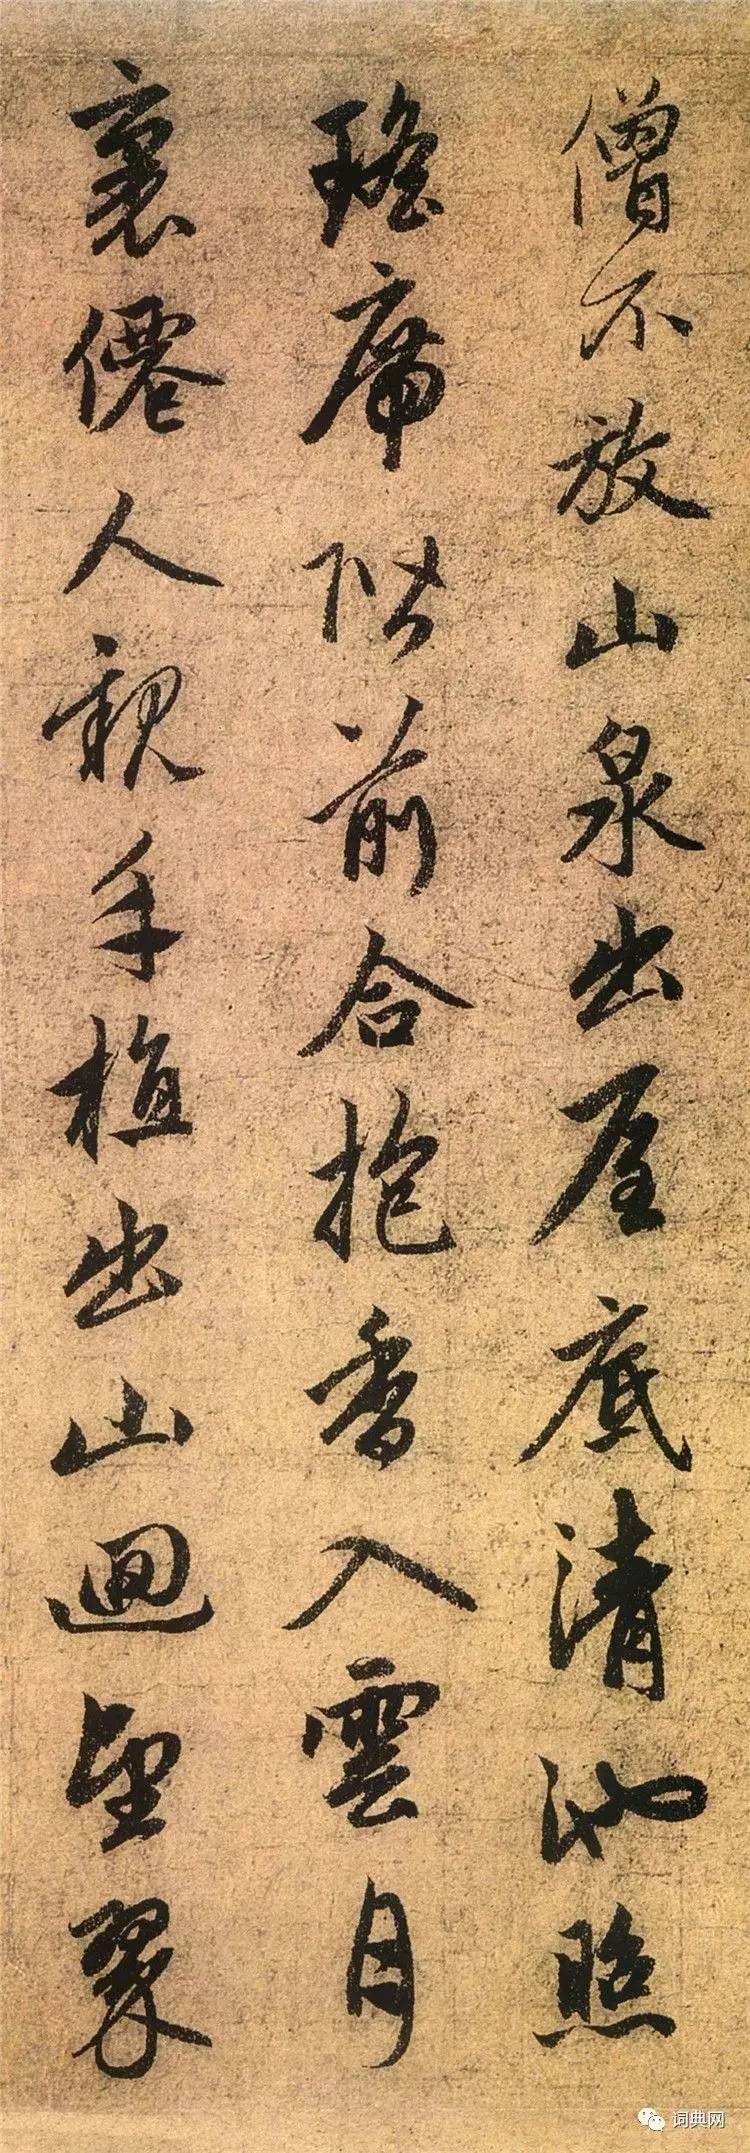 僧不放山泉出屋底清池照
瑤席階前合抱香入雲月
裏僊人親手植出山迴望翠
词典网